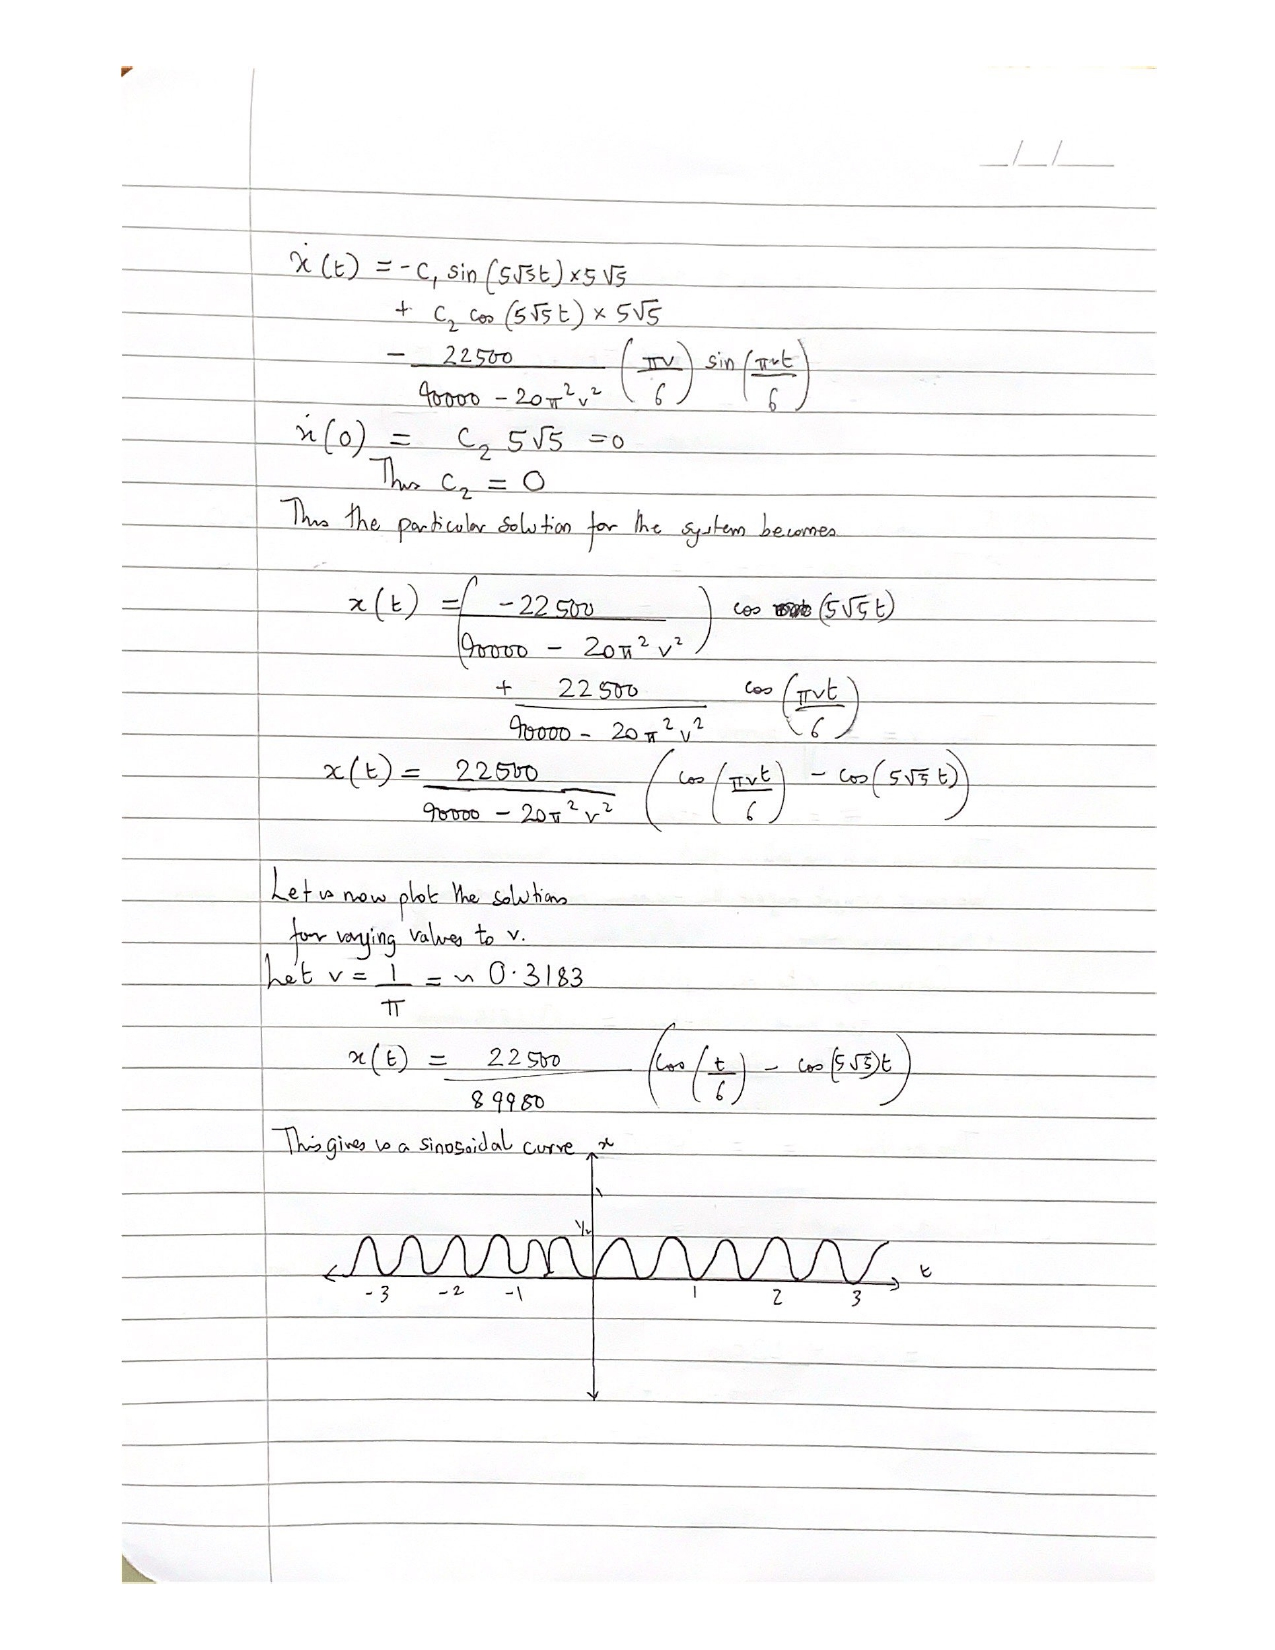 _/_/__
ẋ(t) = -c₁ sin(5√5t)×5√5
+ c₂ cos(5√5t) × 5√5
- 22500/(90000 - 20π²v²) (πv/6) sin(πvt/6)
ẋ(0) = c₂ 5√5 = 0
Thus c₂ = 0
Thus the particular solution for the system becomes
x(t) = (-22500/(90000 - 20π²v²)) cos (5√5t)
+ 22500/(90000 - 20π²v²) cos(πvt/6)
x(t) = 22500/(90000 - 20π²v²) (cos(πvt/6) - cos(5√5t))
Let us now plot the solutions
for varying values to v.
Let v = 1/π = ~ 0.3183
x(t) = 22500/89980 (cos(t/6) - cos(5√5)t)
This gives us a sinosoidal curve
x
1/2
t
-3 -2 -1 1 2 3